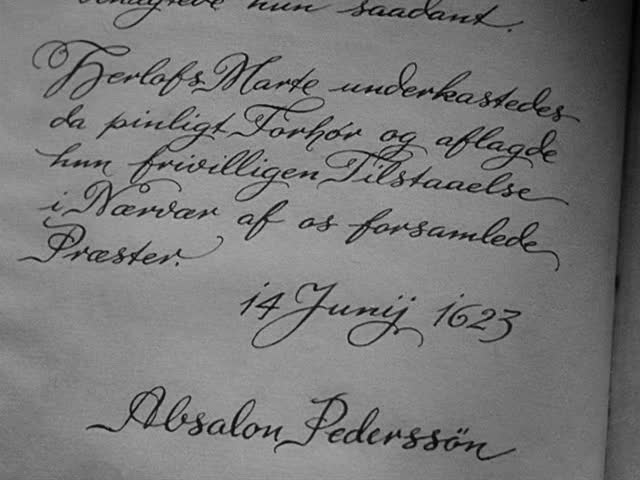 hun saadant.
Herlofs Marte underkastedes
da pinligt Forhør og aflagde
hun frivilligen Tilstaaelse
i Nærvær af os forsamlede
Præster.
14 Junij 1623
Absalon Pederssön